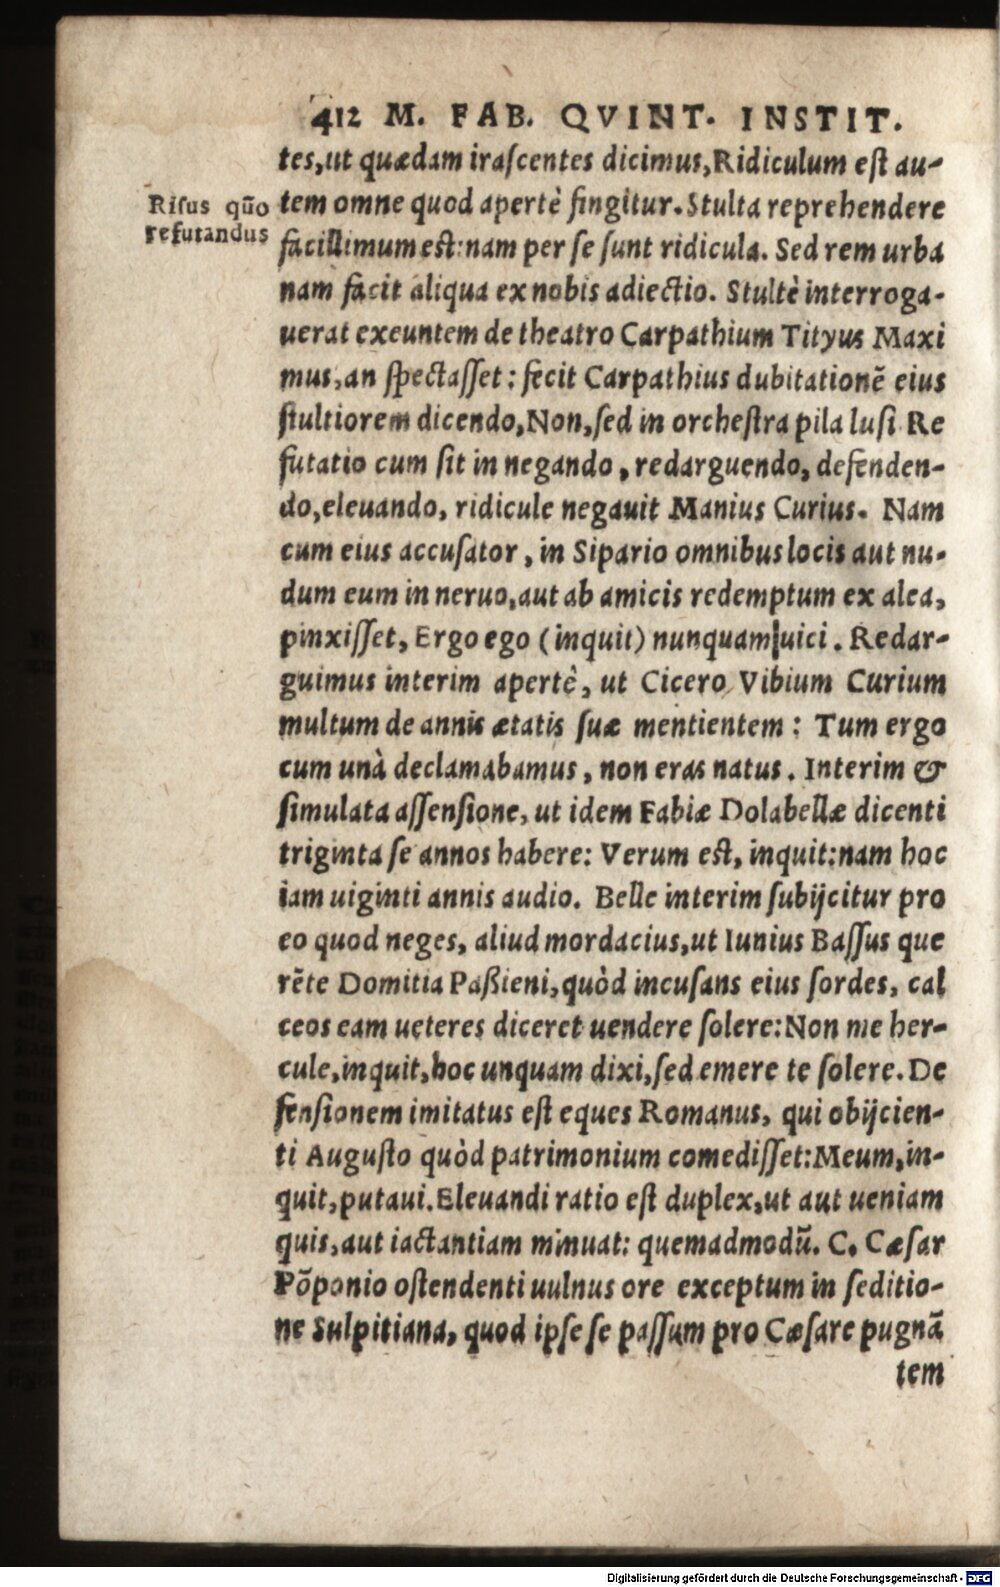 412 M. FAB. QVINT. INSTIT.
tes,ut quædam iraſcentes dicimus,Ridiculum eſt au-
Riſus quõ
refutandus
tem omne quod apertè fingitur.Stulta reprehendere
facillimum eſt:nam per ſe ſunt ridicula. Sed rem urba
nam facit aliqua ex nobis adiectio. Stultè interroga-
uerat exeuntem de theatro Carpathium Tityus Maxi
mus,an ſpectaſſet: fecit Carpathius dubitationẽ eius
ſtultiorem dicendo,Non,ſed in orcheſtra pila luſi Re
futatio cum ſit in negando, redarguendo, defenden-
do,eleuando, ridicule negauit Manius Curius. Nam
cum eius accuſator, in Sipario omnibus locis aut nu-
dum eum in neruo,aut ab amicis redemptum ex alea,
pinxiſſet, Ergo ego (inquit) nunquam uici. Redar-
guimus interim apertè, ut Cicero Vibium Curium
multum de annis ætatis ſuæ mentientem: Tum ergo
cum unà declamabamus, non eras natus. Interim &
ſimulata aſſenſione, ut idem Fabiæ Dolabellæ dicenti
triginta ſe annos habere: Verum eſt, inquit:nam hoc
iam uiginti annis audio. Belle interim ſubijcitur pro
eo quod neges, aliud mordacius,ut Iunius Baſſus que
rẽte Domitia Paßieni,quòd incuſans eius ſordes, cal
ceos eam ueteres diceret uendere ſolere:Non me her-
cule,inquit,hoc unquam dixi,ſed emere te ſolere. De
fenſionem imitatus eſt eques Romanus, qui obijcien-
ti Auguſto quòd patrimonium comediſſet:Meum,in-
quit,putaui.Eleuandi ratio eſt duplex,ut aut ueniam
quis,aut iactantiam minuat: quemadmodũ. C. Cæſar
Põponio oſtendenti uulnus ore exceptum in ſeditio-
ne Sulpitiana, quod ipſe ſe paſſum pro Cæſare pugnã
tem
Digitalisierung gefördert durch die Deutsche Forschungsgemeinschaft - DFG